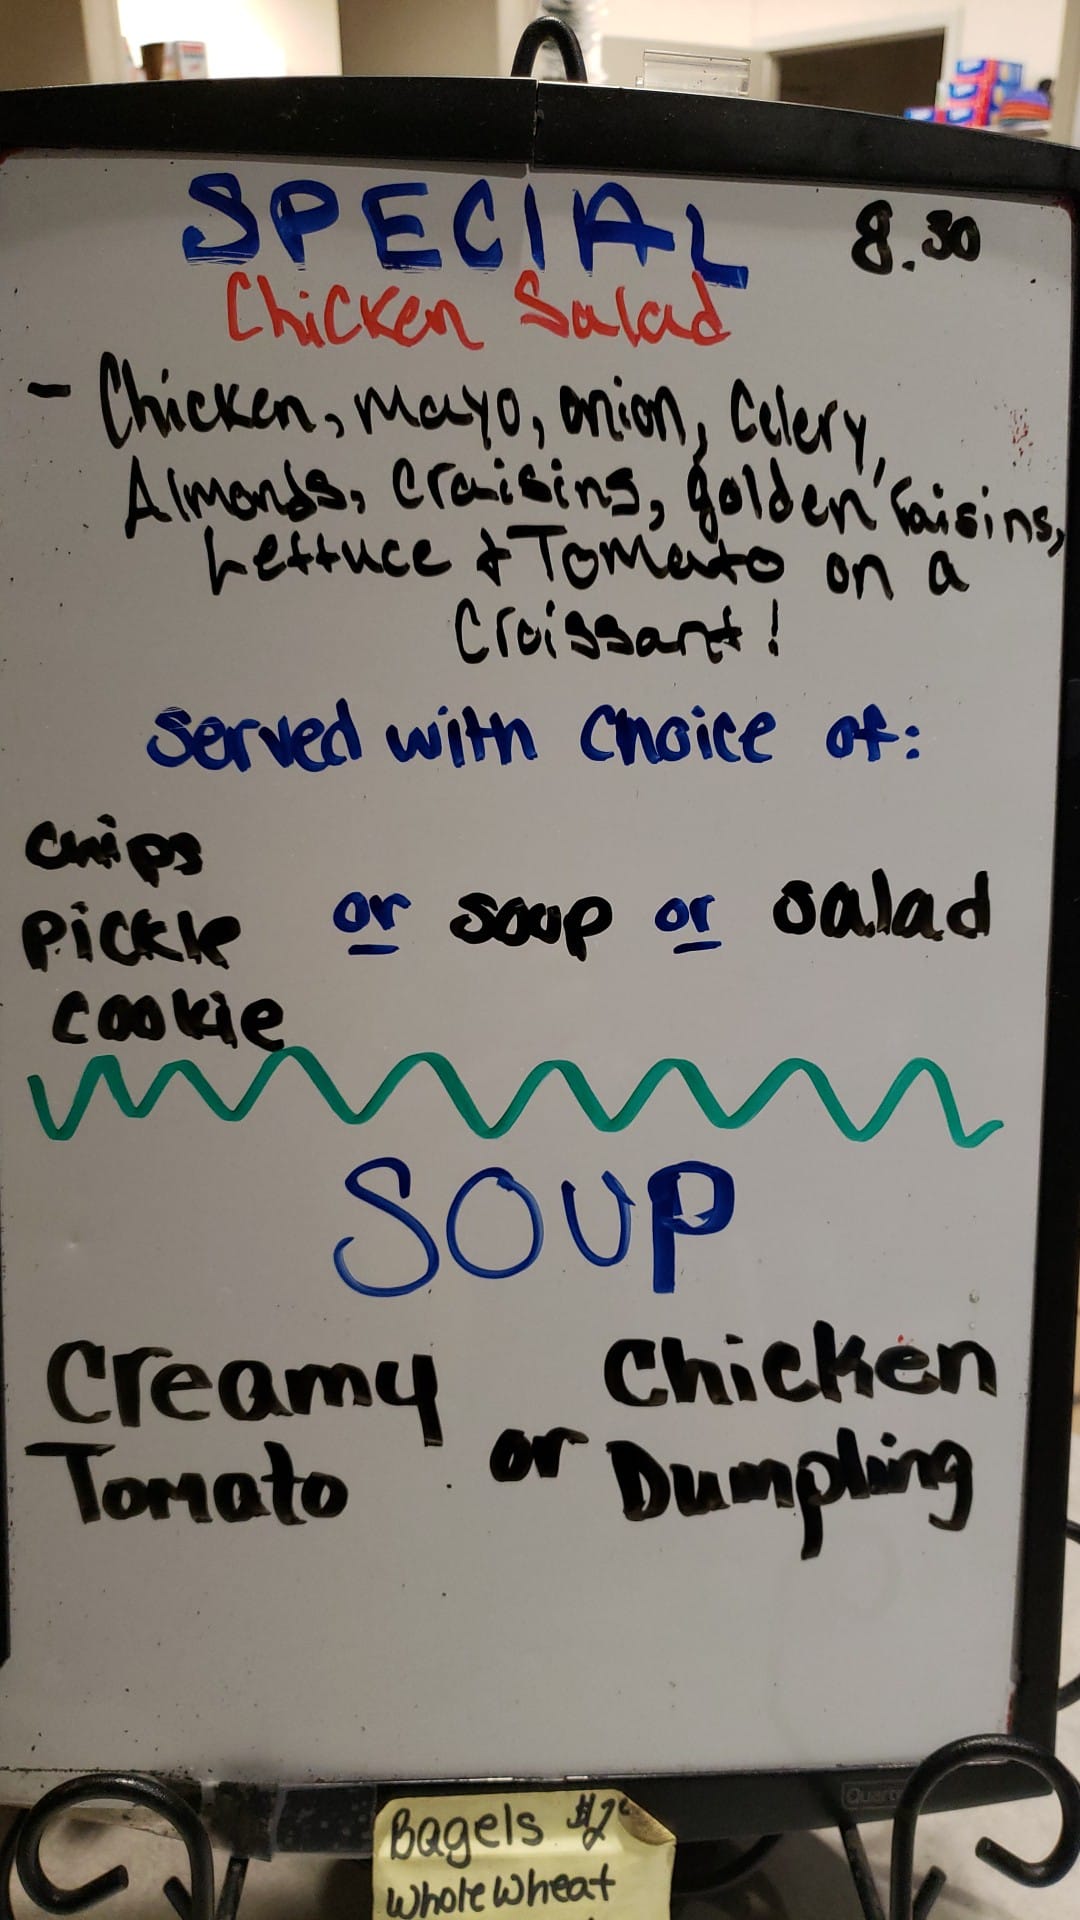 SPECIAL 8.30
Chicken Salad
- Chicken, mayo, onion, Celery,
Almonds, Craisins, golden raisins,
Lettuce & Tomato on a
Croissant!
Served with Choice of:
chips
pickle or soup or salad
cookie
SOUP
Creamy Chicken
Tomato or Dumpling
Bagels $2
Whole Wheat